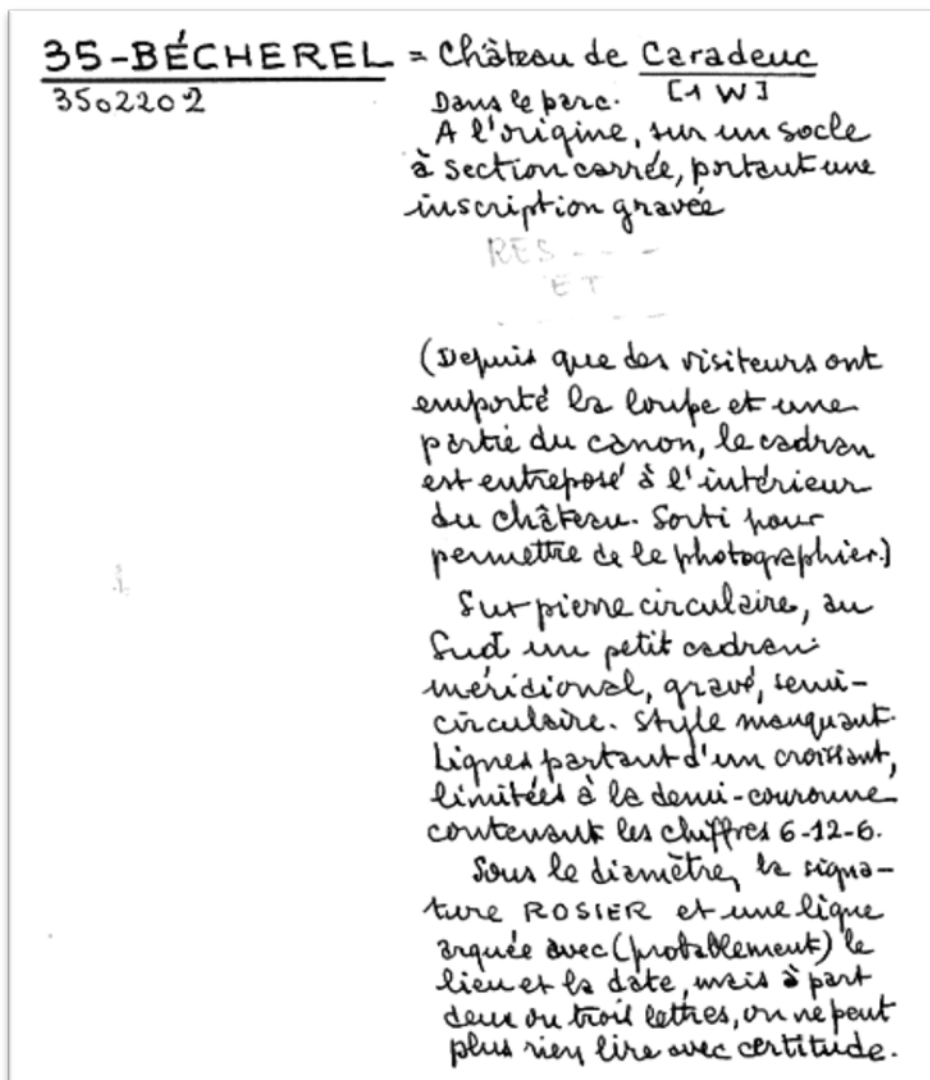 35-BÉCHEREL = Château de Caradeuc
3502202
[1 W]
Dans le parc.
A l'origine, sur un socle
à section carrée, portant une
inscription gravée
RES - - -
ET
- - - - -
(Depuis que des visiteurs ont
emporté la loupe et une
partie du canon, le cadran
est entreposé à l'intérieur
du château. Sorti pour
permettre de le photographier.)
Sur pierre circulaire, au
Sud un petit cadran
méridional, gravé, semi-
circulaire. Style manquant.
Lignes partant d'un croissant,
limitées à la demi-couronne
contenant les chiffres 6-12-6.
Sous le diamètre, la signa-
ture ROSIER et une ligne
arquée avec (probablement) le
lieu et la date, mais à part
deux ou trois lettres, on ne peut
plus rien lire avec certitude.